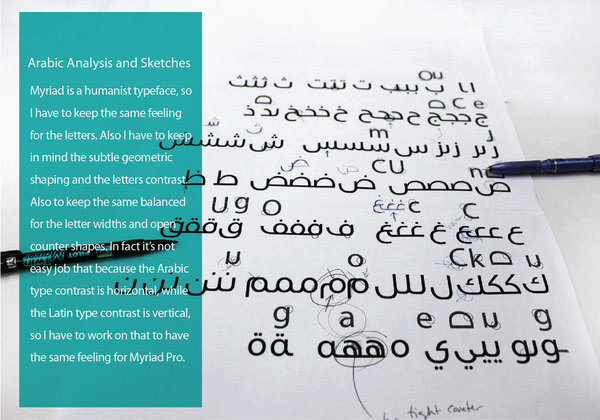 Arabic Analysis and Sketches
Myriad is a humanist typeface, so
I have to keep the same feeling
for the letters. Also I have to keep
in mind the subtle geometric
shaping and the letters contrast.
Also to keep the same balanced
for the letter widths and open
counter shapes. In fact it's not
easy job that because the Arabic
type contrast is horizontal, while
the Latin type contrast is vertical,
so I have to work on that to have
the same feeling for Myriad Pro.
ou
ب ببب ت تتت ث ثثث
c e
ج ججج ح ححح خ خخخ
m
س سسس ش ششش
cu
ص صصص ض ضضض ط ظ
u g o c
c
ع ععع غ غغغ ف ففف ق ققق
u o ck u
ك ككك ل للل م ممم ن ننن
g a e u g
ي ييي ه ههه ةـ ة
tight counter